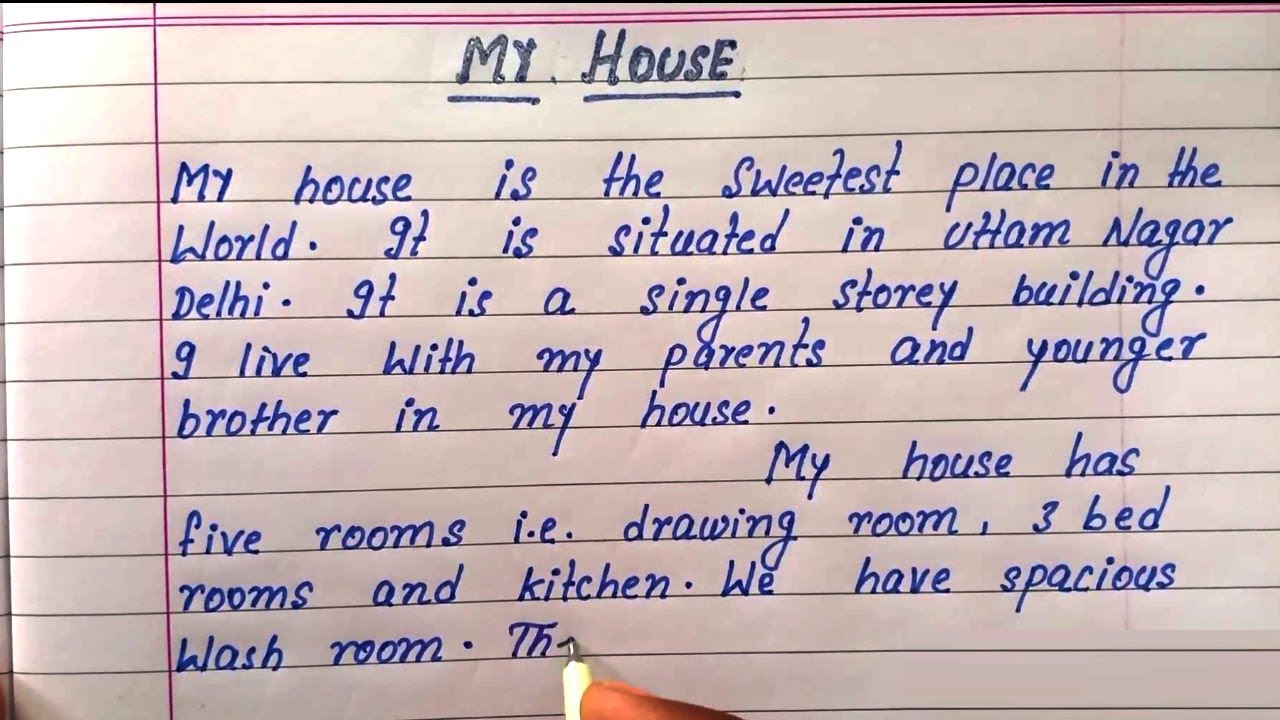 MY HOUSE
MY house is the sweetest place in the
World. It is situated in Uttam Nagar
Delhi. It is a single storey building.
I live with my parents and younger
brother in my house.
My house has
five rooms i.e. drawing room, 3 bed
rooms and kitchen. We have spacious
Wash room. Th